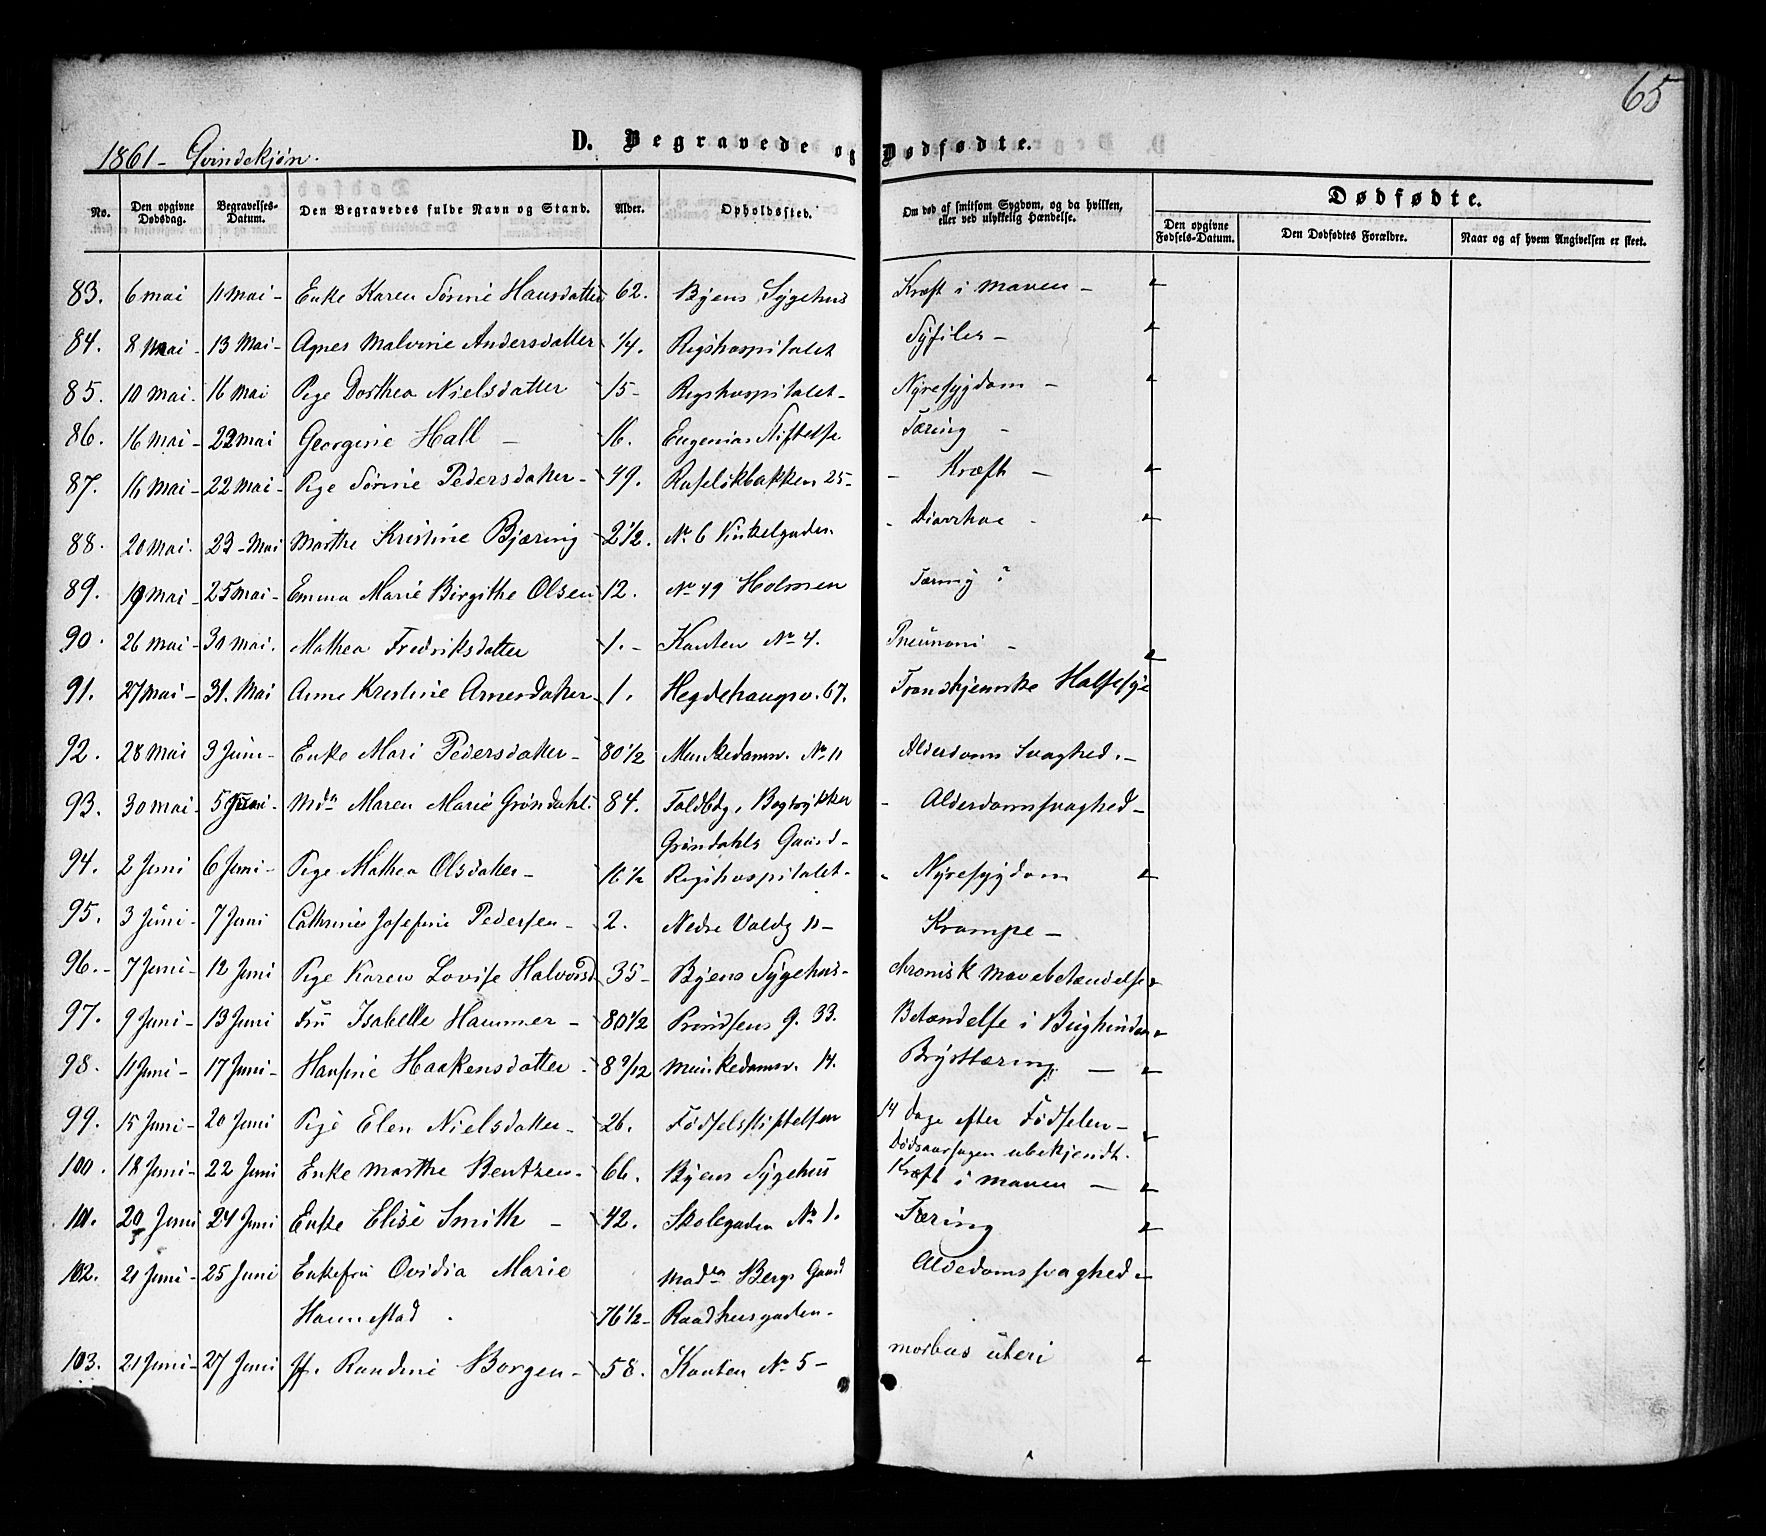 65
1861 - Qvindekjøn.
D. Begravede og Dødfødte.
No. | Den opgivne Dødsdag. | Begravelses-Datum. | Den Begravedes fulde Navn og Stand. | Alder. | Opholdssted. | Om død af smitsom Sygdom, og da hvilken, eller ved ulykkelig Hændelse. | Dødfødte.
Den opgivne Fødsels-Datum. | Den Dødfødtes Forældre. | Naar og af hvem Angivelsen er skeet.
83. 6 Mai 11 Mai - Enke Karen Sørine Hansdatter 62. Byens Sygehus Kræft i Maven -
84. 8 Mai - 13 Mai - Agnes Malvine Andersdatter 1/4. Rigshospitalet Syfiles -
85. 10 Mai. 16 Mai Pige Dorthea Nielsdatter 15 - Rigshospitalet - Nyresygdom -
86. 16 Mai - 22 Mai Georgine Hall - 16. Eugenias Stiftelse Tæring -
87. 16 Mai - 22 Mai - Pige Sørine Pedersdatter - 49. Ruseløkbakken 25 - Kræft -
88. 20 Mai. 23 - Mai Marthe Kristine Bjæring 2 1/2. No 6 Vinkelgaden - Diarrhae -
89. 19 Mai - 25 Mai - Emma Marie Birgithe Olsen 12. No 49 Holmen Tæring ?
90. 26 Mai - 30 Mai. Mathea Fredriksdatter 1. - Kanten No 4. Pneumoni -
91. 27 Mai - 31. Mai Anne Kristine Arnesdatter - 1. Hegdehaugsv. 67. Transkjemske Halsesye
92. 28 Mai 3 Juni - Enke Mari Pedersdatter - 80 1/2 Munkedamsv. No 11 Alderdoms Svaghed. -
93. 30 Mai - 5 Juni - Mdm Maren Marie Grøndahl. 84. Toldbdg, Bogtrykker - Alderdomssvaghed -
Grøndahls Gaard -
94. 2 Juni 6 Juni - Pige Mathea Olsdatter - 16 1/2 Rigshospitalet - - Nyresygdom
95. 3 Juni - 7 Juni Cathrine Josefine Pedersen - 2. Nedre Voldg 11 - Krampe -
96. - 7 Juni - 12 Juni Pige Karen Lovise Halvorsd 35 - Byens Sygehus - chronisk Mavebetændelse
97. 9 Juni - 13 Juni Fru Isabelle Hammer - 80 1/2 Prindsens g. 33. Betændelse i Bughinden
98. 11 Juni - 17 Juni - Hansine Haakensdatter - 8 9/12 Munkedamsv. 14. Brysttæring -
99. 15 Juni - 20 Juni Pige Elen Nielsdatter - 26. Fødselsstiftelsen 14 Dage efter Fødselen -
Dødsaarsagen ubekjendt.
100. 18 Juni - 22 Juni Enke Marthe Bentzen - 66. Byens Sygehus Kræft i Maven -
101. 20 Juni 24 Juni Enke Elise Smith - 42. Skolegaden No 1. Tæring
102. 21 Juni - 25 Juni Enkefru Ovidia Marie Madm Bergs Gaard Aldedomssvaghed -
Hannestad. 76 1/2 - Raadhusgaden -
103. 21 Juni - 27 Juni Jf. Randine Borgen - 58. Kanten No 5 - morbus uteri